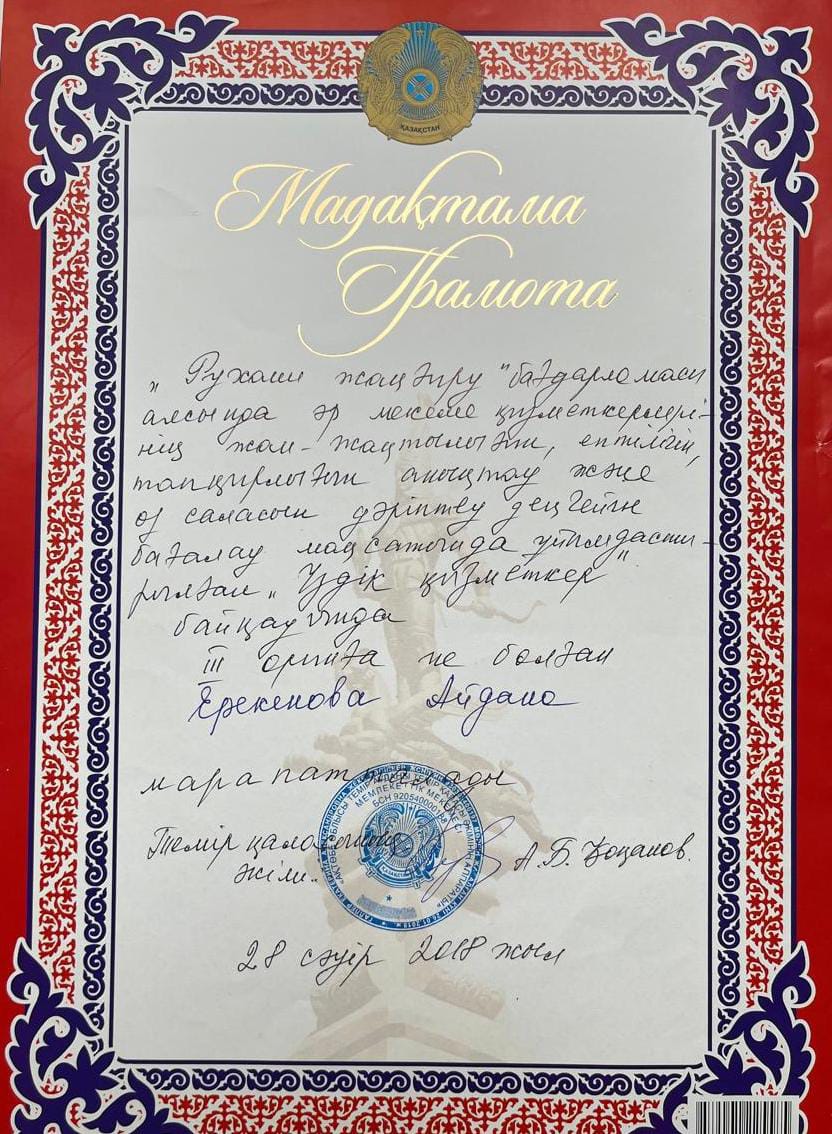 ҚАЗАҚСТАН
Мадақтама
Грамота
„Рухани жаңғыру" бағдарламасы
аясында әр мекеме қызметкерлері-
нің жан-жақтылығын, ептілігін,
тапқырлығын анықтау және
өз саласын дәріптеу деңгейін
бағалау мақсатында ұйымдасты-
рылған „Үздік қызметкер"
байқауында
III орынға ие болған
Ерекенова Айдана
марапатталады
Темір қаласының
әкімі
А.Б.
28 сәуір 2018 жыл
МЕМЛЕКЕТТІК МЕКЕМЕСІ